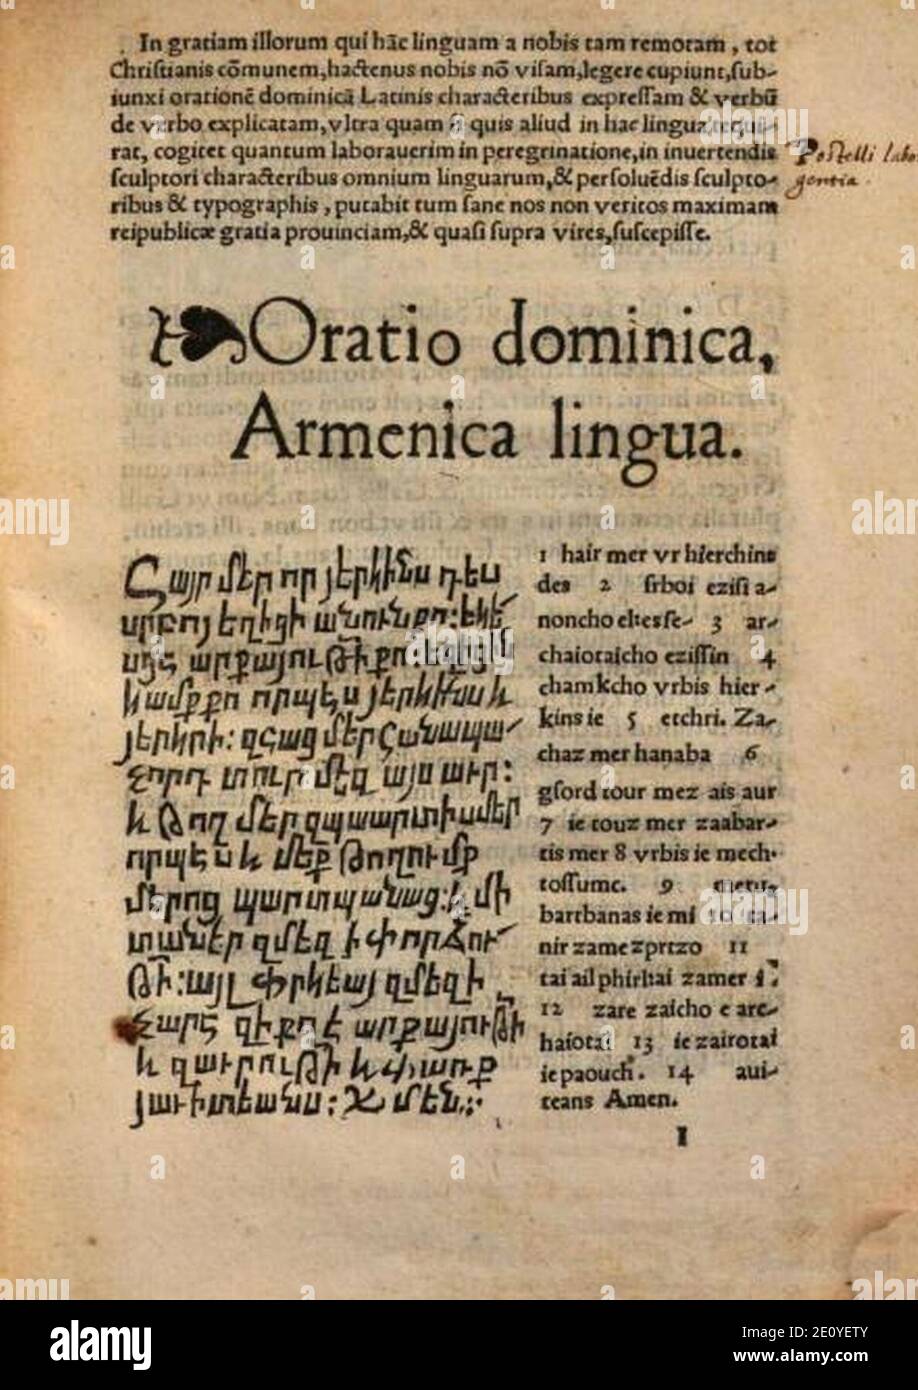 In gratiam illorum qui hãc linguam a nobis tam remotam, tot
Christianis cõmunem, hactenus nobis nõ visam, legere cupiunt, sub-
iunxi orationẽ dominicã Latinis characteribus expressam & verbũ
de verbo explicatam, vltra quam si quis aliud in hac lingua requi-
rat, cogitet quantum laborauerim in peregrinatione, in inuertendis
sculptori characteribus omnium linguarum, & persoluẽdis sculpto-
ribus & typographis, putabit tum sane nos non veritos maximam
reipublicæ gratia prouinciam, & quasi supra vires, suscepisse.
Postelli
gentia.
Oratio dominica,
Armenica lingua.
Հայր մեր որ յերկինս դես
սրբոյ եղիցի անունքո: եկե՛
սցէ արքայութի քո: եղիցի
կամք քո որպէս յերկինս և
յերկրի: զհաց մեր հանապա՛
զորդ տուր մեզ այսաւր:
և թող մեր զպաարտիսմեր
որպէս և մեք թողումք
մերոց պարտպանաց: և մի
տաներ զմեզ ի փորձու՛
թի: այլ փրկեայ զմեզ ի
չարէ զի քո է արքայութի
և զաւրութի և փառք
յաւիտեանս: Ամեն.
1 hair mer vr hierchins
des 2 srboi ezisi a-
noncho ekesse- 3 ar-
chaiotaicho ezissin 4
chamkcho vrbis hier-
kins ie 5 etchri. Za-
chaz mer hanaba 6
gsord tour mez ais aur
7 ie touz mer zaabar-
tis mer 8 vrbis ie mech
tossumc. 9
bartbanas ie mi 10 ta-
nir zamezprtzo 11
tai ail phirltai zamer i:
12 zare zaicho e arc-
haiotai 13 ie zairotai
ie paouch. 14 aui-
teans Amen.
I
a
alamy
Image ID: 2E0YETY
www.alamy.com